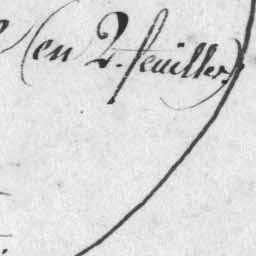 (en 2. feuilles)